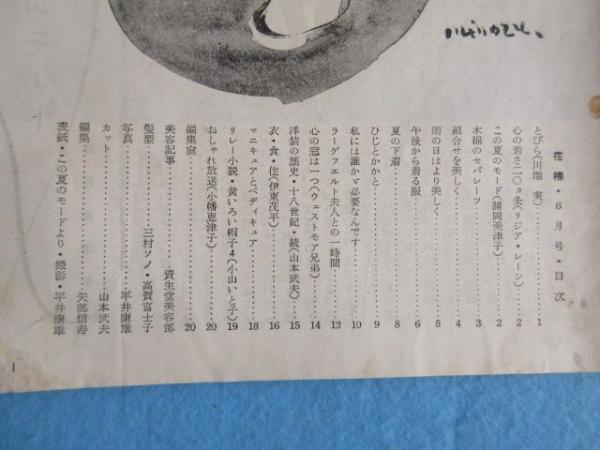 花椿・6月号・目次
とびら(川端 実)…………1
心の若さ二〇ヵ条(リジア・レーン)……2
この夏のモード(諸岡美津子)……2
木綿のセパレーツ……3
組合せを美しく……4
雨の日はより美しく……5
午後から着る服……6
夏の下着……8
ひじとかかと……9
私には誰かが必要なんです……10
ラーゲフエルト夫人との一時間……12
心の窓は一つ(ウェストモア兄弟)……14
洋装の歴史・十八世紀・続(山本武夫)……15
衣・食・住(伊東茂平)……16
マニキュアとペディキュア……18
リレー小説・黄いろい帽子4(小山いと子)……19
おしゃれ放送(小幡恵津子)……20
編集室……20
美容記事……資生堂美容部
髪型……三村ソノ・高賀富士子
写真……平井康雄
カット……山本武夫
編集……矢部信寿
表紙・この夏のモードより・撮影・平井康雄
1